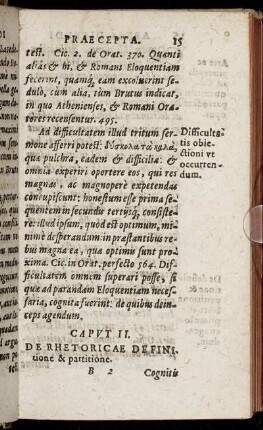 PRAECEPTA. 15
test. Cic. 2. de Orat. 370. Quanti
aliàs & hi, & Romani Eloquentiam
fecerint, quamq́, eam excoluerint se-
dulò, cùm alia, tum Brutus indicat,
in quo Athenienses, & Romani Ora-
tores recensentur. 495.
Ad difficultatem illud tritum ser-
mone afferri potest: δύσκολα τὰ καλὰ,
quæ pulchra, eadem & difficilia: &
omnia experiri oportere eos, qui res
magnas, ac magnopere expetendas
concupiscunt: honestum esse prima se-
quentem in secundis tertijsq́, consiste-
re: illud ipsum, quòd est optimum, mi-
nimè desperandum: in præstantibus re-
bus magna ea, quæ optimis sunt pro-
xima. Cic. in Orat. perfecto 564. Dif-
ficultatem omnem superari posse, si
quæ ad parandam Eloquentiam neces-
saria, cognita fuerint: de quibus dein-
ceps agendum.
Difficulta-
tis obie-
ctioni vt
occurren-
dum.
CAPVT II.
DE RHETORICAE DEFINI-
tione & partitione.
B 2 Cognitis